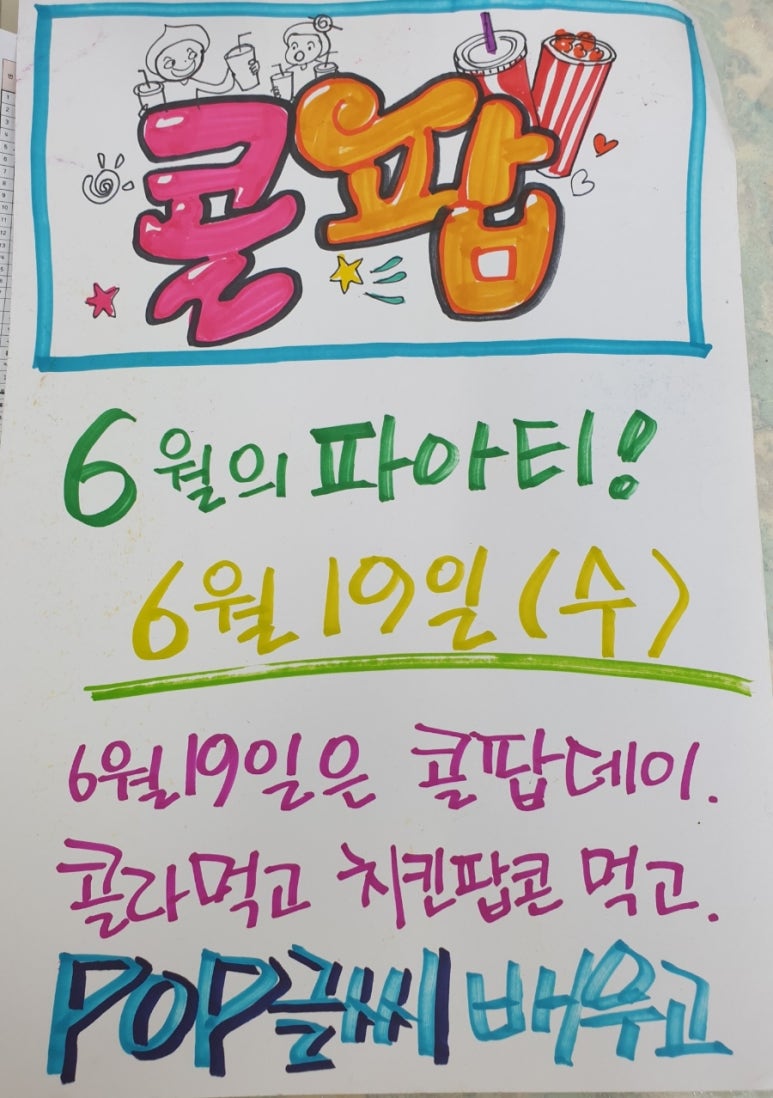 콜팝
6월의 파아티!
6월 19일 (수)
6월19일은 콜팝데이.
콜라먹고 치킨팝콘 먹고.
POP글씨 배우고